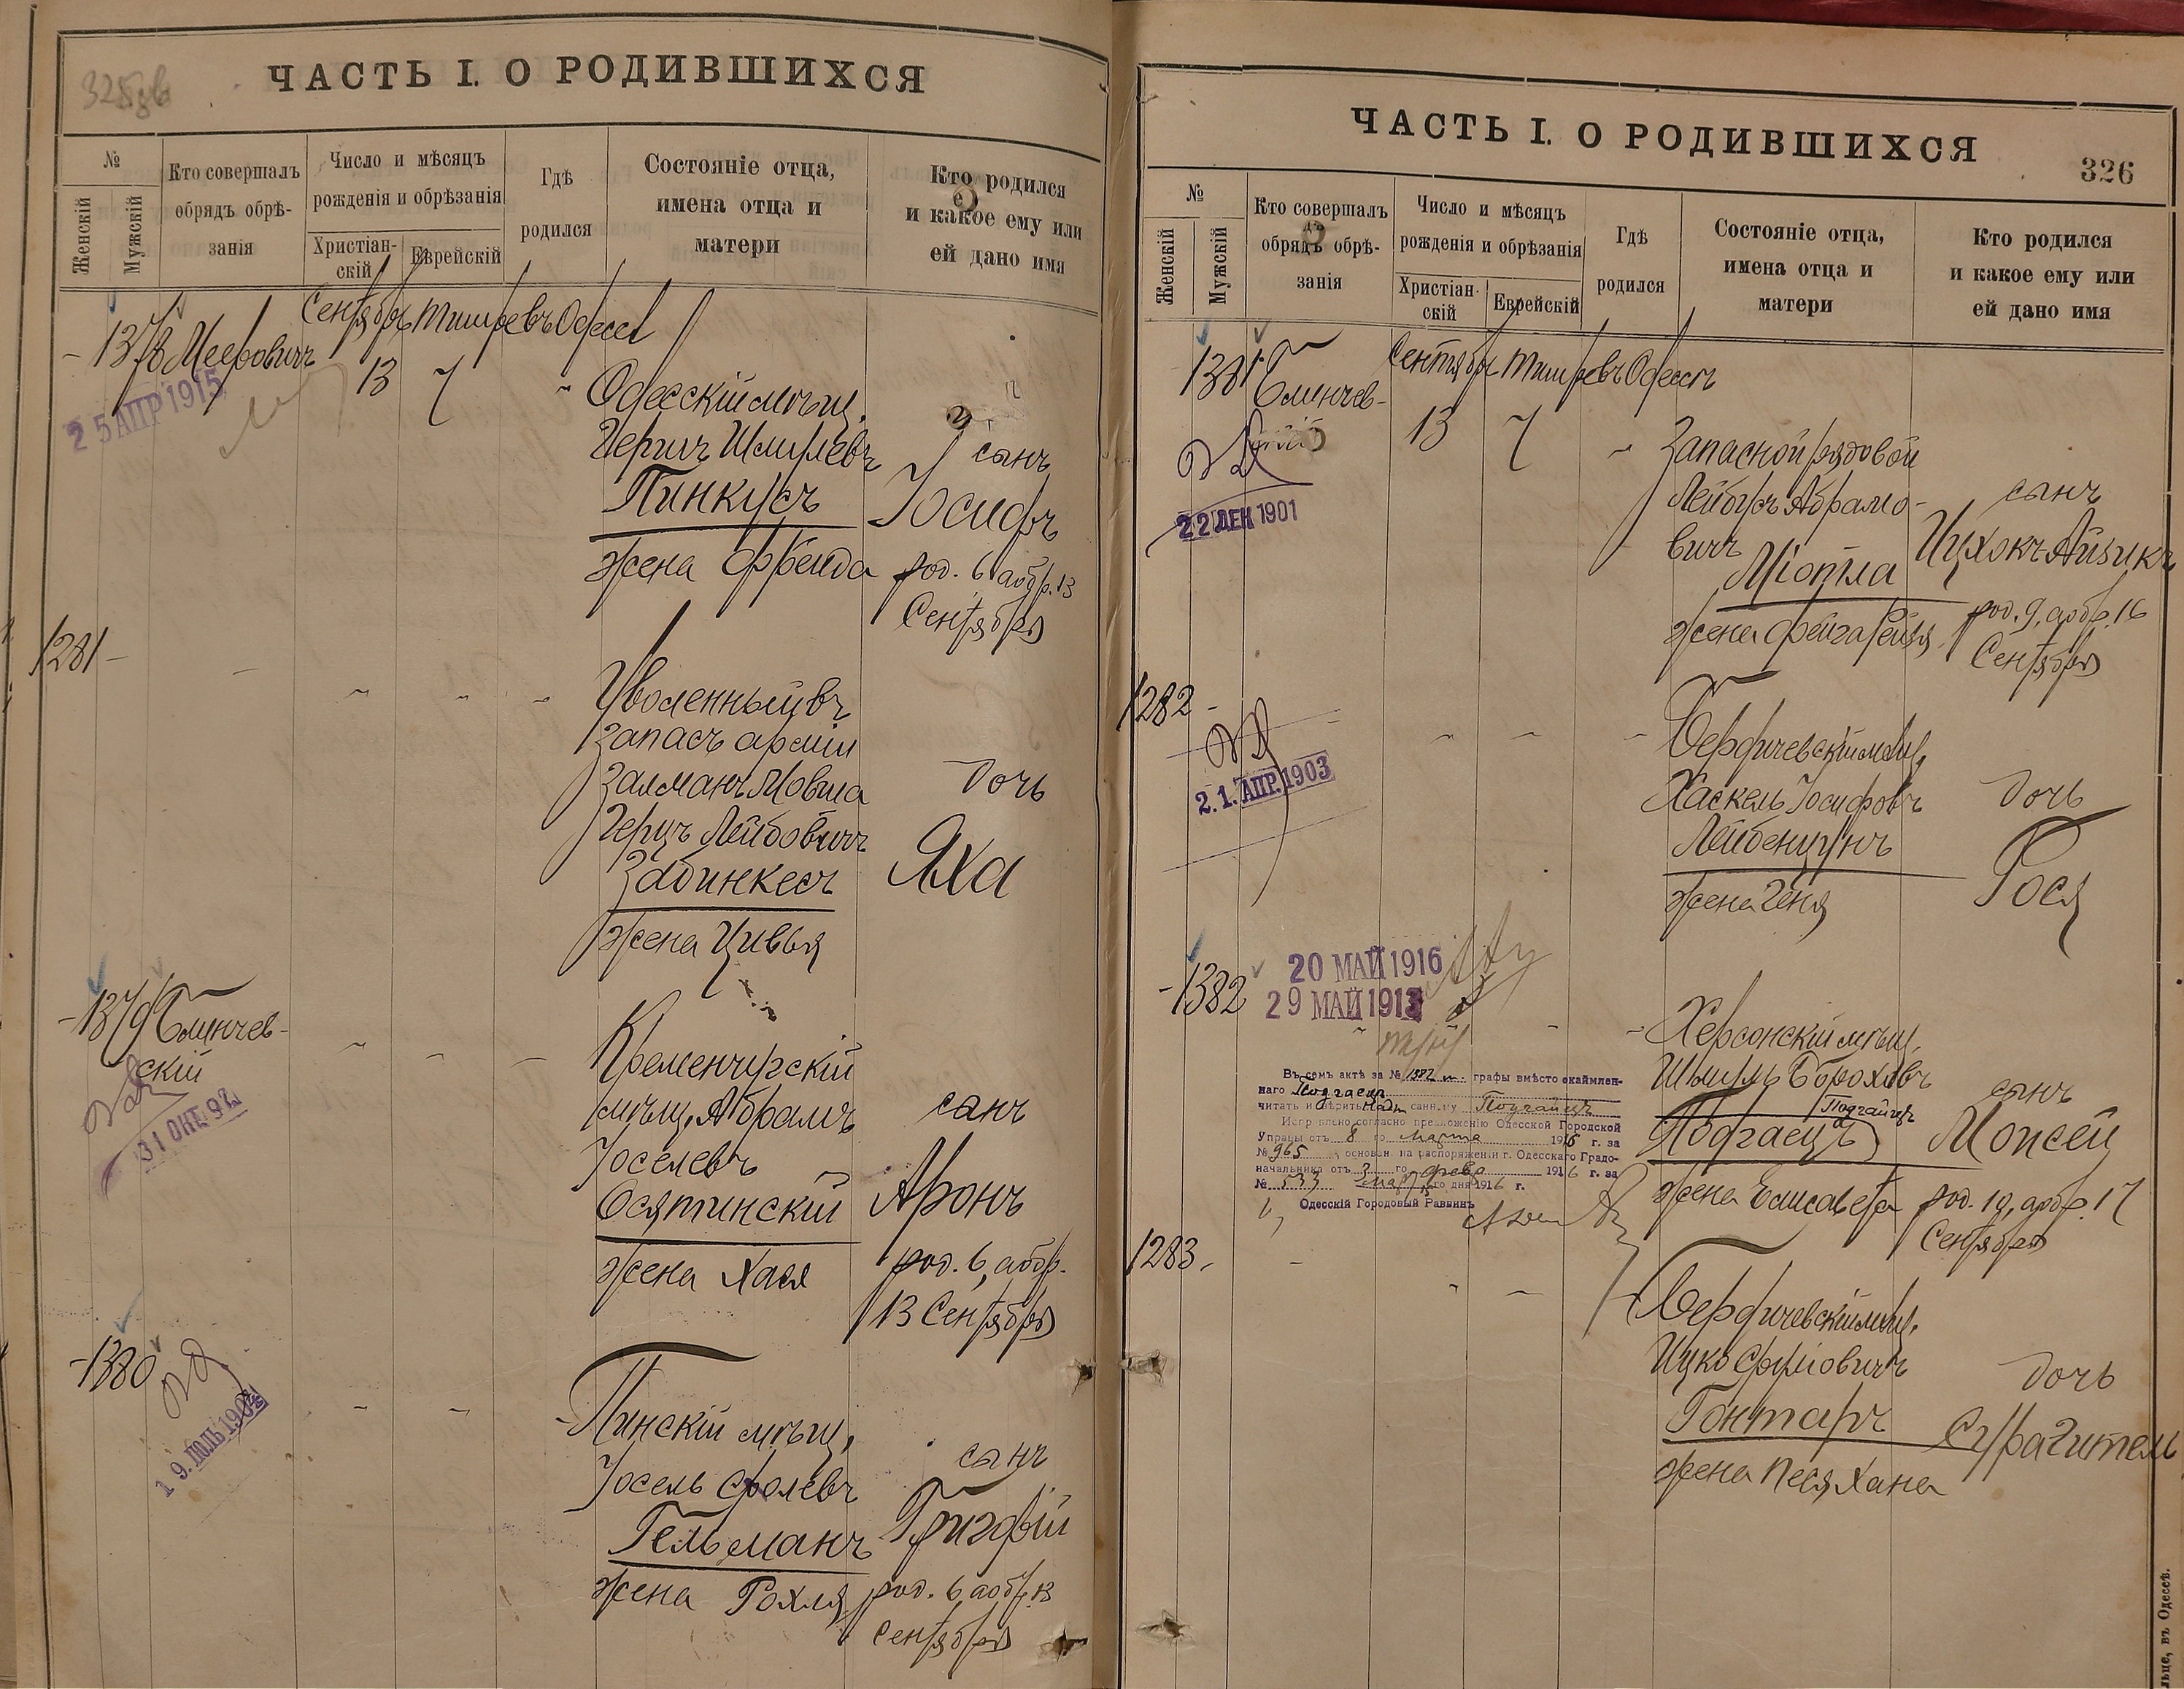 325об
ЧАСТЬ I. О РОДИВШИХСЯ
№
Женскій
Мужскій
Кто совершалъ
обрядъ обрѣ-
занія
Число и мѣсяцъ
рожденія и обрѣзанія
Христіан-
скій
Еврейскій
Гдѣ
родился
Состояніе отца,
имена отца и
матери
Кто родился
и какое ему или
ей дано имя
Сентябрь Тишре въ Одессѣ
1378 Мееровичъ
25 АПР 1915
13 7
Одесскій мѣщ.
Гершъ Шмулевъ
Пинкусъ
жена Фрейда
сынъ
Іосифъ
род. 6, а обр. 13
Сентября
1281
Уволенный въ
запасъ арміи
Залманъ Мовша
Герцъ Лейбовичъ
Забинкесъ
жена Цивья
дочь
Яха
1379 Блинчев-
скій
31 ОКТ. 92
Кременчугскій
мѣщ. Абрамъ
Іоселевъ
Осятинскій
жена Хася
сынъ
Аронъ
род. 6, а обр.
13 Сентября
1380
19. ІЮЛЬ 1904
Пинскій мѣщ.
Іосель Сролевъ
Гельманъ
жена Рохля
сынъ
Григорій
род. 6, а обр. 13
Сентября
ЧАСТЬ I. О РОДИВШИХСЯ
326
№
Женскій
Мужскій
Кто совершалъ
обрядъ обрѣ-
занія
Число и мѣсяцъ
рожденія и обрѣзанія
Христіан-
скій
Еврейскій
Гдѣ
родился
Состояніе отца,
имена отца и
матери
Кто родился
и какое ему или
ей дано имя
Сентябрь Тишре въ Одессѣ
1381 Блинчев-
скій
22 ДЕК 1901
13 7
Запасной рядовой
Лейбусъ Абрамо-
вичъ
Міопла
жена Фейга Рейзя
сынъ
Ицхокъ Айзикъ
род. 9, а обр. 16
Сентября
1282
2.1. АПР. 1903
Бердичевскій мѣщ.
Хаскель Іосифовъ
Лейбенцунъ
жена Геня
дочь
Рося
1382
20 МАЙ 1916
29 МАЙ 1913
Въ семъ актѣ за № 1382 м. графы вмѣсто окаймлен-
наго Подгаецъ
читать и вѣрить надписанному Подгайцъ
Исправлено согласно предложенію Одесской Городской
Управы отъ 8 го марта 1916 г. за
№ 965, основан. на распоряженіи г. Одесскаго Градо-
начальника отъ 3 го февр 1916 г. за
№ 533 марта го дня 1916 г.
Одесскій Городовый Раввинъ
Херсонскій мѣщ.
Шмуль Бороховъ
Подгайцъ
Подгаецъ
жена Елисавета
сынъ
Моисей
род. 10, а обр. 17
Сентября
1283
Бердичевскій мѣщ.
Ицко Сруліовичъ
Гонтаръ
жена Песя Хана
дочь
Сура Гитель